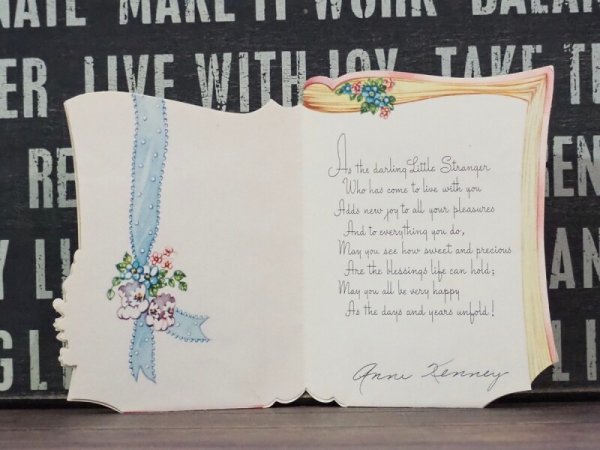 NATE MAKE IT WORK BALAN
ER LIVE WITH JOY TAKE TI
RE
EN
Y LI
AN
GL
LI
As the darling Little Stranger
Who has come to live with you
Adds new joy to all your pleasures
And to everything you do,
May you see how sweet and precious
Are the blessings life can hold;
May you all be very happy
As the days and years unfold!
Anne Kenney